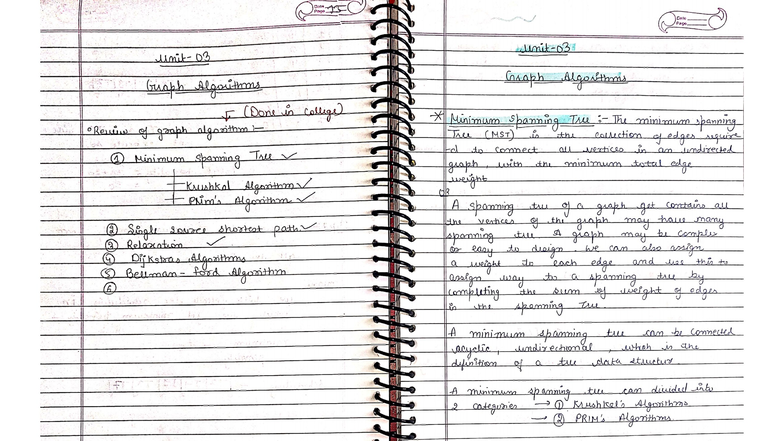 Date
Page 75
Unit-03
Graph Algorithms
(Done in college)
Review of graph algorithm :-
① Minimum Spanning Tree ✓
Krushkal Algorithm ✓
Prim's Algorithm ✓
② Single source shortest path ✓
③ Relaxation ✓
④ Dijkstras Algorithms
⑤ Bellman - ford Algorithm
⑥
Date
Page
Unit-03
Graph Algorithms
* Minimum Spanning Tree :- The minimum spanning
Tree (MST) is the collection of edges require
-d to connect all vertices in an undirected
graph, with the minimum total edge
weight
OR
A spanning tree of a graph get contains all
the vertices of the graph may have many
spanning tree a graph may be complex
or easy to design, we can also assign
a weight to each edge and use this to
assign way to a spanning tree by
completing the sum of weight of edges
in the spanning Tree.
A minimum spanning tree can be connected
acyclic, undirectional, which is the
definition of a tree data structur.
A minimum spanning tree can divided into
2 categories → ① Krushkel's Algorithms
→ ② PRIM's Algorithms